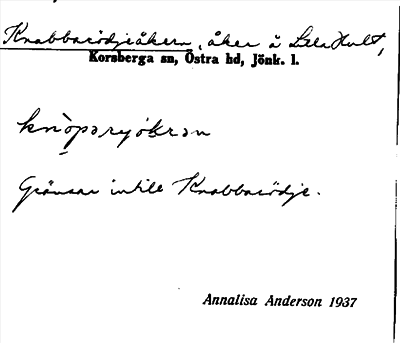 Knabbarödjeåkern, åker å Lilla Hult,
Korsberga sn, Östra hd, Jönk. l.
Gränsar intill Knabbarödje.
Annalisa Anderson 1937